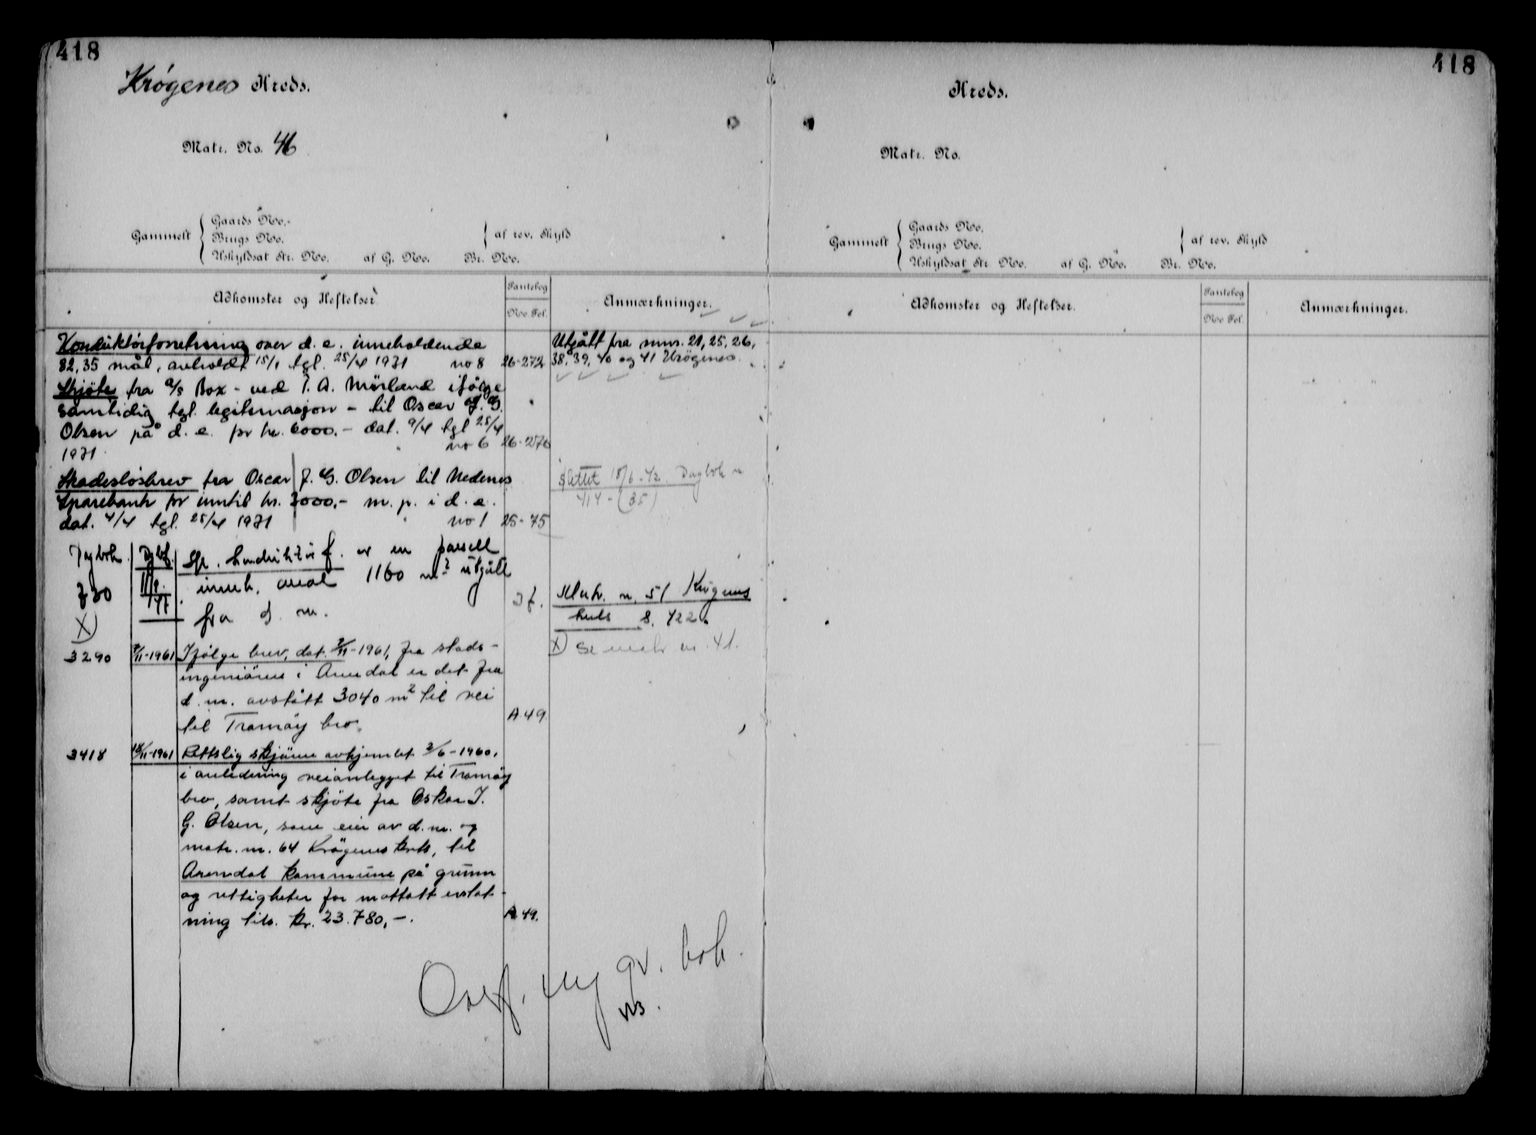 418
Krøgenes Kreds.
Matr. No. 46
Gammelt
Gaards No.
Brugs No.
Uskyldsat Str. No. af G. No. Br. No.
af rev. Skyld
Adkomster og Heftelser
Pantebog
No. Fol.
Anmærkninger.
Konduktørforretning over d. e. inneholdende
82,35 mål, avholdt 15/1 tgl. 25/4 1931 no 8 26-272
Utgått fra mnr. 21, 25, 26,
38, 39, 40 og 41 Krögenes.
Skjöte fra a/s Box - ved T. A. Mörland ifölge
samtidig tgl. legitimasjon - til Oscar J. G.
Olsen på d. e. for kr. 6000.- dat. 9/4 tgl 25/4
1931 no 6 26-276
Skadeslösbrev fra Oscar J. G. Olsen til Nedenes
Sparebank for inntil kr. 3000.- m. p. i d. e.
dat. 4/4 tgl. 25/4 1931 no 1 25-75
slettet 18/6-42 Dagbok n
414-(35)
Dagbok
730
X)
konduktörf. over en parsell
inneh. areal 1160 m² utgått
fra d. m.
Matr. n. 51 Krögenes
kreds S. 422.
X) Se matr. nr. 41.
3290 7/11-1961 Ifölge brev, dat. 2/11-1961, fra stads-
ingeniören i Arendal er det fra
d. m. avstått 3040 m² til vei
til Tromöy bro. A 49
3418 18/11-1961 Rettslig skjönn avhjemlet 2/6-1960,
i anledning veianlegget til Tromöy
bro, samt skjöte fra Oskar J.
G. Olsen, som eier av d. m. og
matr. nr. 64 Krögenes krets, til
Arendal kommune på grunn
og rettigheter for mottatt erstat-
ning tils. kr. 23.780,-. A 49.
Overf. ny gr. bok.
418
Kreds.
Matr. No.
Gammelt
Gaards No.
Brugs No.
Uskyldsat Str. No. af G. No. Br. No.
af rev. Skyld
Adkomster og Heftelser.
Pantebog
No. Fol.
Anmærkninger.